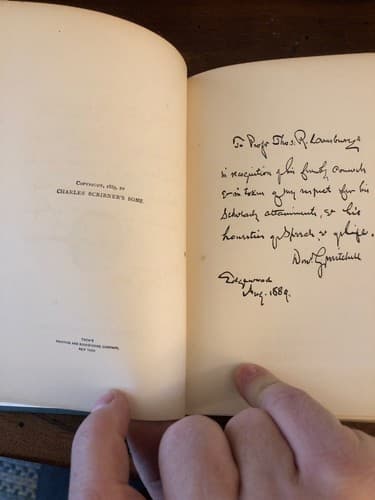 Copyright, 1889, by
CHARLES SCRIBNER'S SONS.
TROW'S
PRINTING AND BOOKBINDING COMPANY,
NEW YORK.
To Profr Thos. R. Lounsbury
in recognition of his friendly counsels
& in token of my respect for his
Scholarly attainments, & his
honesties of Speech, & of life.
Don'd G Mitchell
Edgewood
Aug. 1889.